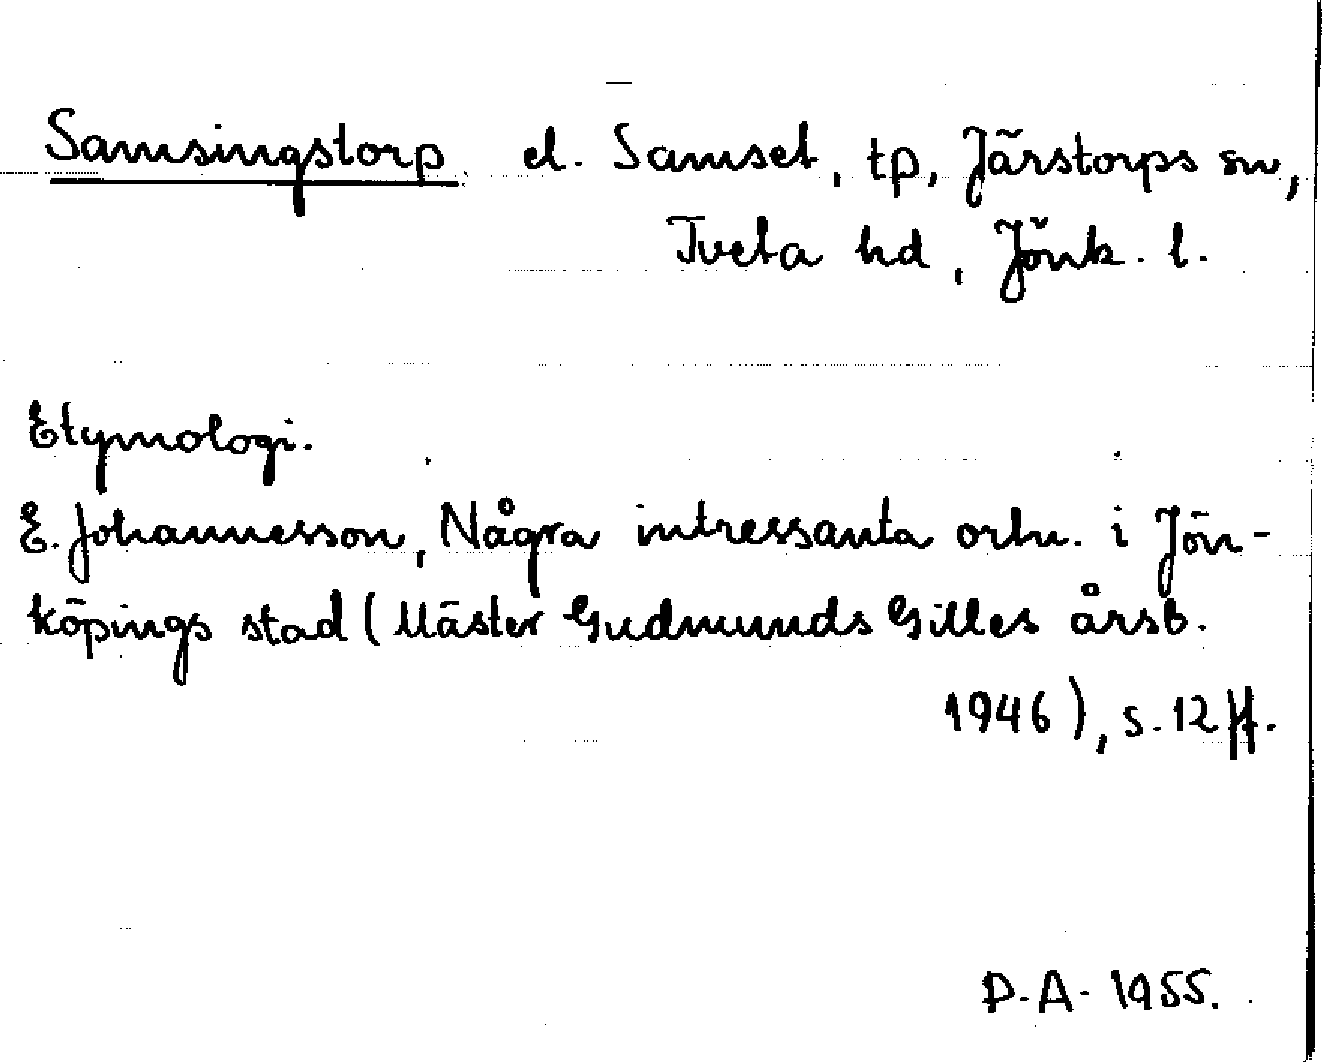 Samsingstorp el. Samset, tp, Järstorps sn,
Tveta hd, Jönk. l.
Etymologi.
E. Johannesson, Några intressanta ortn. i Jön-
köpings stad (Mäster Gudmunds Gilles årsb.
1946), s. 12 ff.
P.A. 1955.